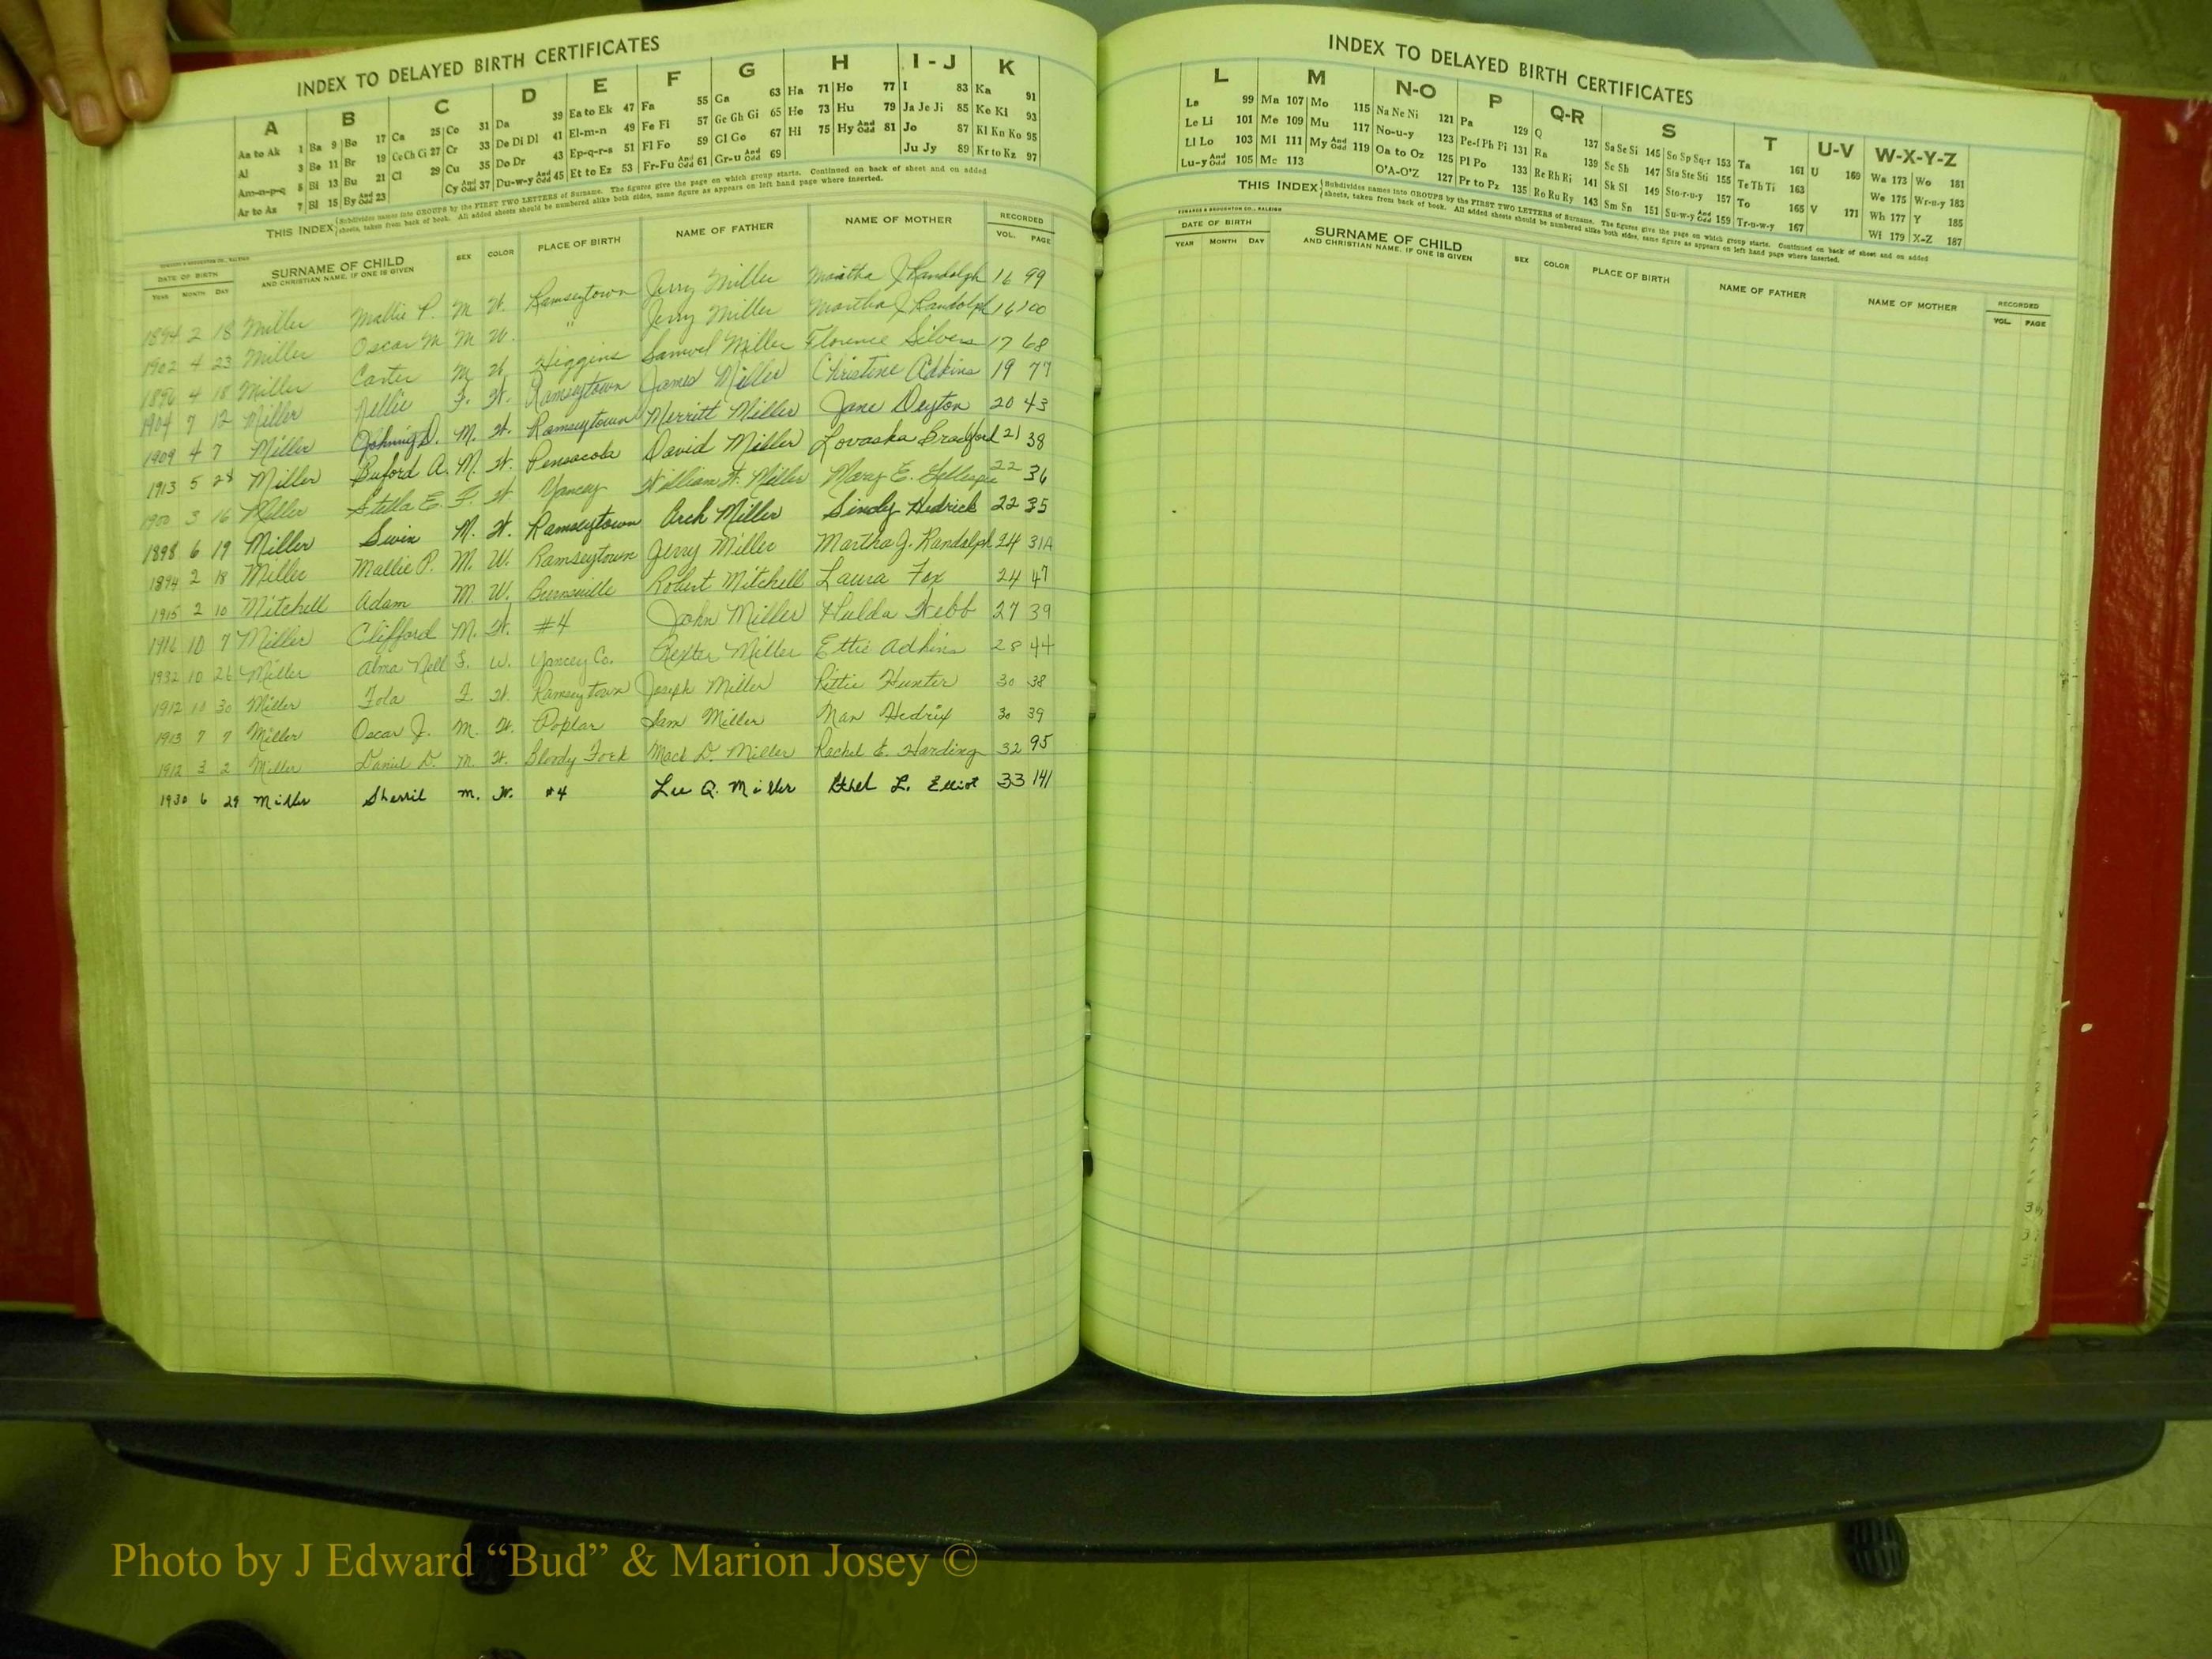 INDEX TO DELAYED BIRTH CERTIFICATES
A B C D E F G H I - J K
Aa to Ak 1 Ba 9 Bo 17 Ca 25 Co 31 Da 39 Ea to Ek 47 Fa 55 Ga 63 Ha 71 Ho 77 I 83 Ka 91
Al 3 Be 11 Br 19 Ce Ch Ci 27 Cr 33 De Di Dl 41 El-m-n 49 Fe Fi 57 Ge Gh Gi 65 He 73 Hu 79 Ja Je Ji 85 Ke Ki 93
Am-n-p-q 5 Bi 13 Bu 21 Cl 29 Cu 35 Do Dr 43 Ep-q-r-s 51 Fl Fo 59 Gl Go 67 Hi 75 Hy And Odd 81 Jo 87 Kl Kn Ko 95
Ar to Az 7 Bl 15 By And Odd 23 Cy And Odd 37 Du-w-y And Odd 45 Et to Ez 53 Fr-Fu And Odd 61 Gr-u And Odd 69 Ju Jy 89 Kr to Kz 97
THIS INDEX Subdivides names into GROUPS by the FIRST TWO LETTERS of Surname. The figures give the page on which group starts. Continued on back of sheet and on added
sheets, taken from back of book. All added sheets should be numbered alike both sides, same figure as appears on left hand page where inserted.
EDWARDS & BROUGHTON CO., RALEIGH
DATE OF BIRTH SURNAME OF CHILD SEX COLOR PLACE OF BIRTH NAME OF FATHER NAME OF MOTHER RECORDED
YEAR MONTH DAY AND CHRISTIAN NAME, IF ONE IS GIVEN VOL. PAGE
1894 2 18 Miller Mallie P. M W. Ramseytown Jerry Miller Martha J Randolph 16 99
1902 4 23 Miller Oscar M M W. " Jerry Miller Martha J Randolph 16 100
1896 4 18 Miller Carter M W. Higgins Samuel Miller Florence Silvers 17 68
1904 7 12 Miller Nellie F. W. Ramseytown James Miller Christine Adkins 19 77
1909 4 7 Miller Johnny D. M. W. Ramseytown Merritt Miller Jane Deyton 20 43
1913 5 28 Miller Buford A. M. W. Pensacola David Miller Lovaska Bradford 21 38
1900 3 16 Miller Stella E. F. W. Yancey William W. Miller Mary E. Gillespie 22 36
1898 6 19 Miller Swin M. W. Ramseytown Arch Miller Sindy Hedrick 22 35
1894 2 18 Miller Mallie P. M. W. Ramseytown Jerry Miller Martha J. Randolph 24 31A
1915 2 10 Mitchell Adam M W. Burnsville Robert Mitchell Laura Fox 24 47
1916 10 7 Miller Clifford M. W. #4 John Miller Hulda Webb 27 39
1932 10 26 Miller Alma Nell F. W. Yancey Co. Rexter Miller Ettie Adkins 28 44
1912 11 30 Miller Fola F. W. Ramseytown Joseph Miller Rittie Hunter 30 38
1913 7 7 Miller Oscar J. M. W. Poplar Sam Miller Nan Hedrix 30 39
1912 3 2 Miller Daniel D. M. W. Bloody Fork Mack D. Miller Rachel E. Harding 32 95
1930 6 29 Miller Sherril M. W. #4 Lee Q. Miller Ethel L. Elliot 33 141
INDEX TO DELAYED BIRTH CERTIFICATES
L M N-O P Q-R S T U-V W-X-Y-Z
La 99 Ma 107 Mo 115 Na Ne Ni 121 Pa 129 Q 137 Sa Se Si 145 So Sp Sq-r 153 Ta 161 U 169 Wa 173 Wo 181
Le Li 101 Me 109 Mu 117 No-u-y 123 Pe-f Ph Pi 131 Ra 139 Sc Sh 147 Sta Ste Sti 155 Te Th Ti 163 We 175 Wr-u-y 183
Ll Lo 103 Mi 111 My And Odd 119 Oa to Oz 125 Pl Po 133 Re Rh Ri 141 Sk Sl 149 Sto-r-u-y 157 To 165 V 171 Wh 177 Y 185
Lu-y And Odd 105 Mc 113 O'A-O'Z 127 Pr to Pz 135 Ro Ru Ry 143 Sm Sn 151 Su-w-y And Odd 159 Tr-u-w-y 167 Wi 179 X-Z 187
THIS INDEX Subdivides names into GROUPS by the FIRST TWO LETTERS of Surname. The figures give the page on which group starts. Continued on back of sheet and on added
sheets, taken from back of book. All added sheets should be numbered alike both sides, same figure as appears on left hand page where inserted.
EDWARDS & BROUGHTON CO., RALEIGH
DATE OF BIRTH SURNAME OF CHILD SEX COLOR PLACE OF BIRTH NAME OF FATHER NAME OF MOTHER RECORDED
YEAR MONTH DAY AND CHRISTIAN NAME, IF ONE IS GIVEN VOL. PAGE
Photo by J Edward “Bud” & Marion Josey ©